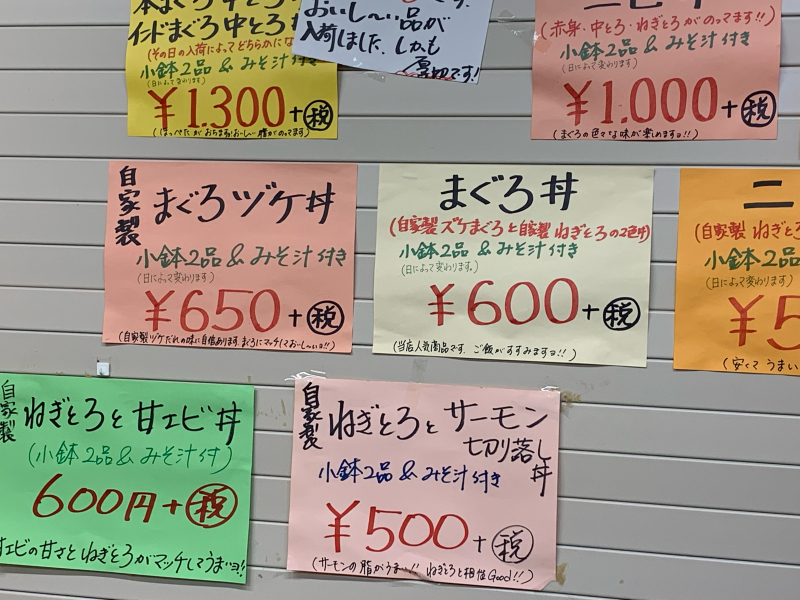 本まぐろ中とろ
インドまぐろ中とろ丼
(その日の入荷によってどちらかにな
小鉢2品 & みそ汁付き
(日によって変わります)
¥1.300+税
(ほっぺたがおちまする!おいし〜い脂がのってます)
おいし〜い品が
入荷しました。しかも
厚切です!
(赤身・中とろ・ねぎとろがのってます!!)
小鉢2品 & みそ汁付き
(日によって変わります)
¥1.000+税
(まぐろの色々な味が楽しめますョ!!)
自家製
まぐろヅケ丼
小鉢2品 & みそ汁付き
(日によって変わります)
¥650+税
(自家製ヅケだれの味に自信あります。まぐろにマッチしておいし〜いョ!!)
まぐろ丼
(自家製ズケまぐろと自家製ねぎとろの2色丼)
小鉢2品 & みそ汁付き
(日によって変わります。)
¥600+税
(当店人気商品です。ご飯がすすみますョ!!)
ニ
(自家製ねぎとろ
小鉢2品 &
(日によって変わります)
¥5
(安くてうまい
自家製
ねぎとろと甘エビ丼
(小鉢2品 & みそ汁付)
600円+税
甘エビの甘さとねぎとろがマッチしてうまいョ!!
自家製
ねぎとろとサーモン
切り落し
丼
小鉢2品 & みそ汁付き
¥500+税
(サーモンの脂がうま〜!! ねぎとろと相性Good!!)